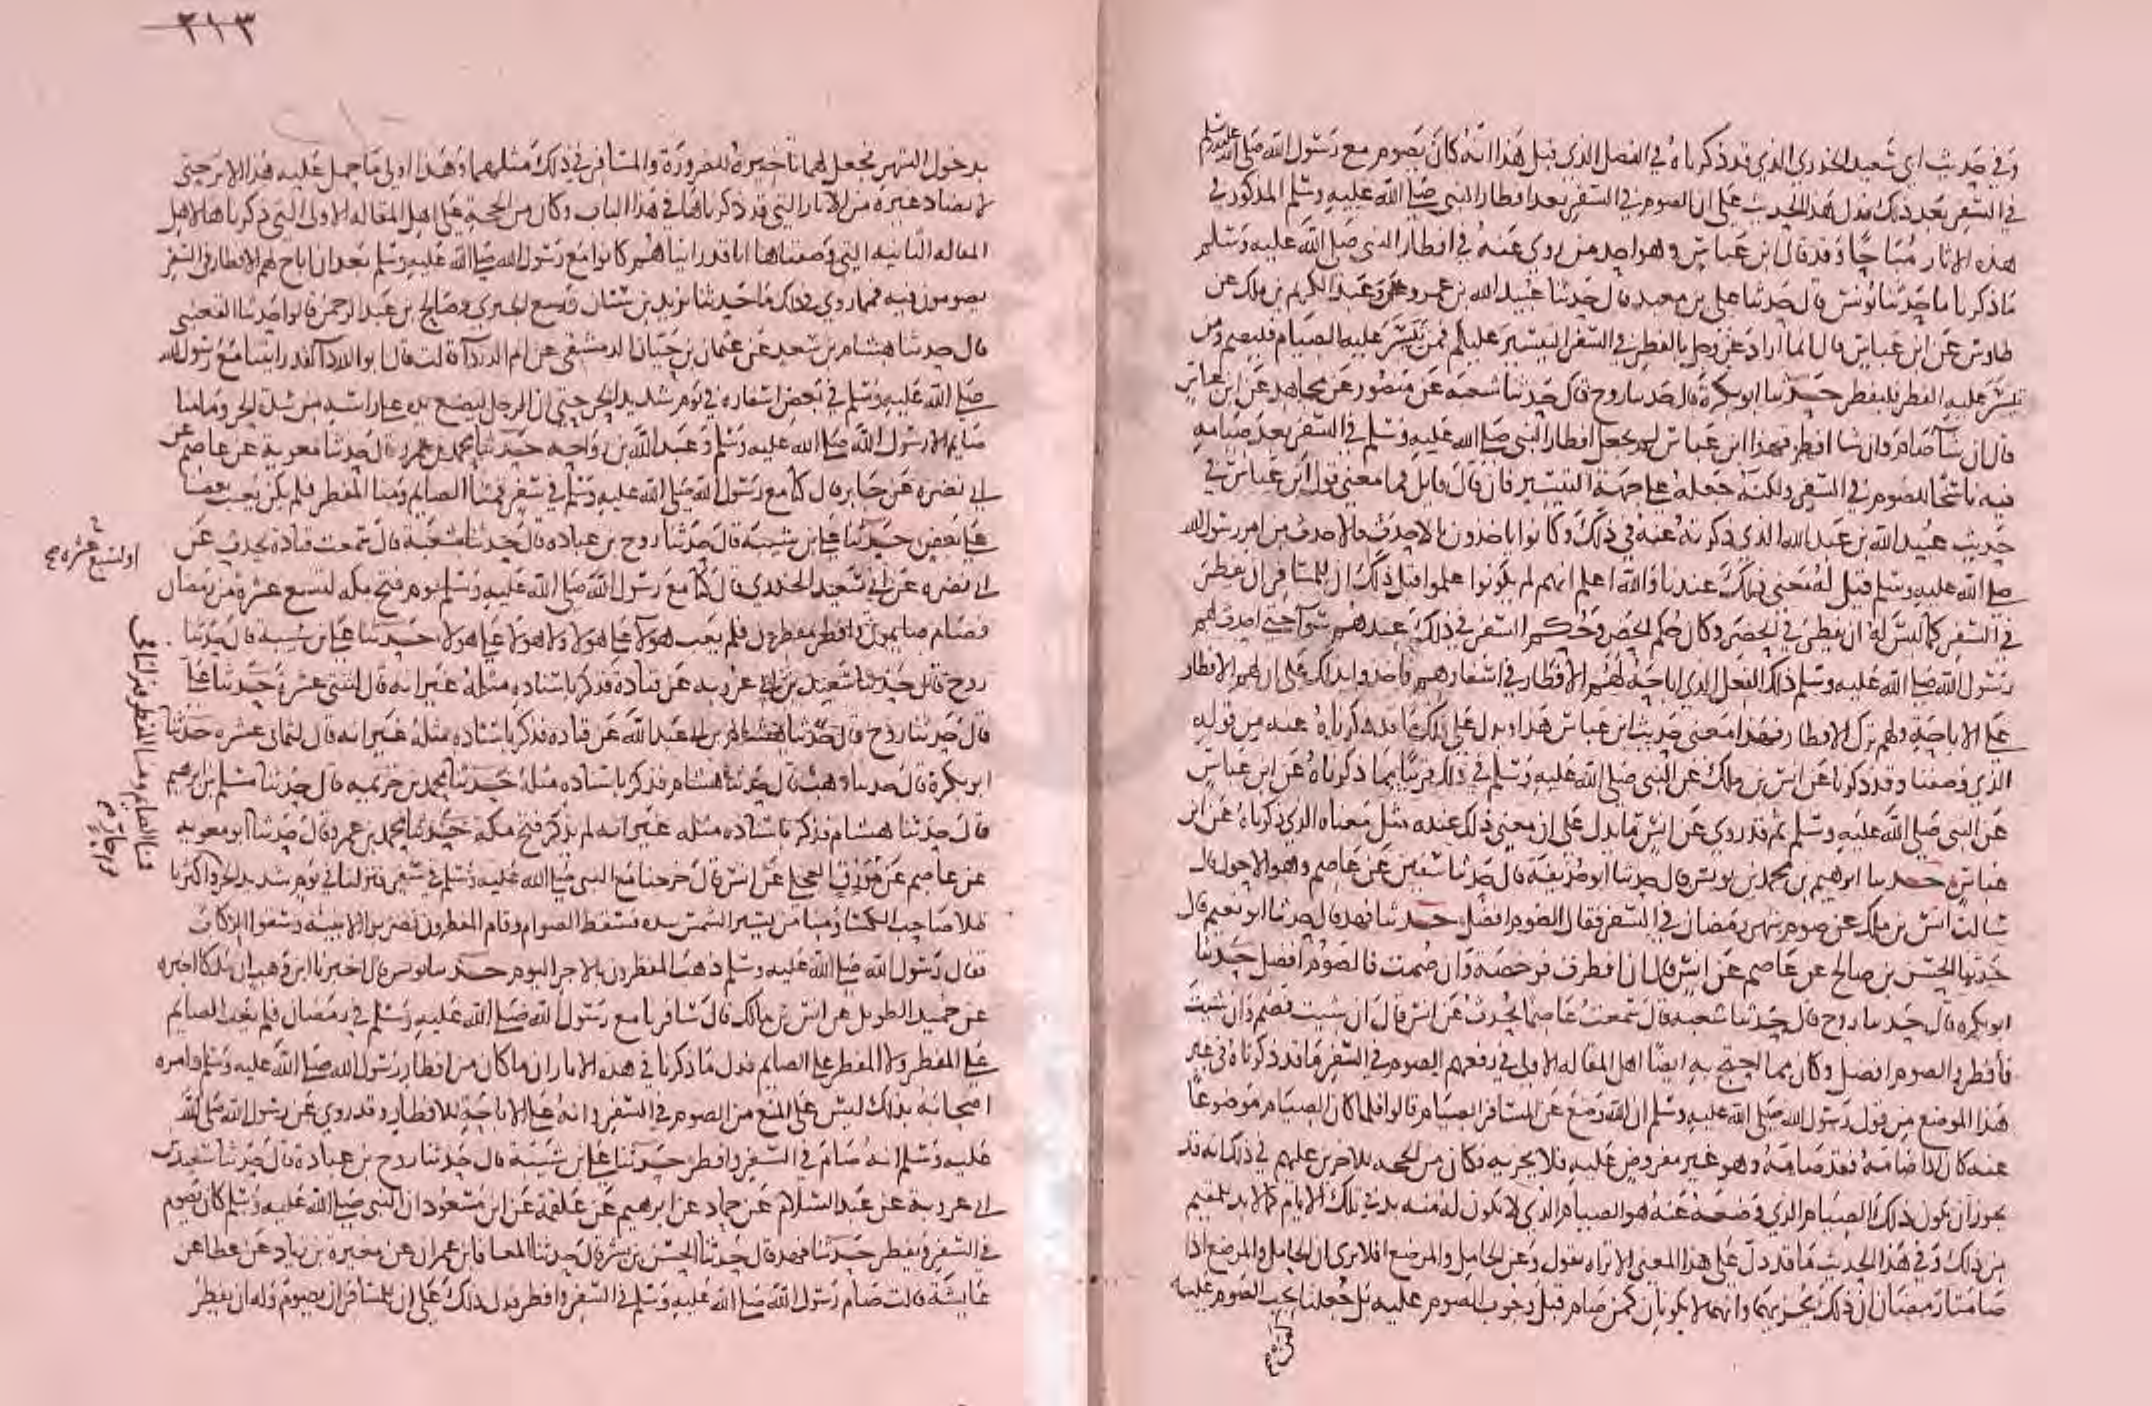 وفي حديث ابي سعيد الخدري الذي قد ذكرناه في الفصل الذي قبل هذا انه كان يصوم مع رسول الله صلى الله عليه وسلم
في السفر بعد ذلك فدل هذا الحديث على ان الصوم في السفر بعد افطار النبي صلى الله عليه وسلم المذكور في
هذه الاثار مباحا وقد قال ابن عباس وهو احد من روي عنه في افطار النبي صلى الله عليه وسلم
ما ذكرنا ما حدثنا يونس قال حدثنا علي بن معبد قال حدثنا عبيد الله بن عمرو عن عبد الكريم بن ملك عن
طاوس عن ابن عباس قال انما اراد عز وجل بالفطر في السفر التيسير عليكم فمن تيسر عليه الصيام فليصم ومن
تيسر عليه الفطر فليفطر حدثنا ابو بكرة قال حدثنا روح قال حدثنا شعبة عن منصور عن مجاهد عن ابن عباس
قال ان شا صام وان شا افطر فهذا ابن عباس لم يجعل افطار النبي صلى الله عليه وسلم في السفر بعد صيامه
فيه ناسخا للصوم في السفر ولكنه جعله على جهة التيسير فان قال قايل فما معنى قول ابن عباس في
حديث عبيد الله بن عبد الله الذي ذكرته عنه في ذلك وكانوا ياخذون بالاحدث فالاحدث من امر رسول الله
صلى الله عليه وسلم قيل له معنى ذلك عندنا والله اعلم انهم لم يكونوا علموا قبل ذلك ان للمسافر ان يفطر
في السفر كما ليس له ان يفطر في الحضر وكان حكم الحضر وحكم السفر في ذلك عندهم سوا حتى احدث لهم
رسول الله صلى الله عليه وسلم ذلك الفعل الذي اباحه لهم الافطار في اسفارهم فاخذوا بذلك على ان لهم الافطار
على الاباحة ولهم ترك الافطار فهذا معنى حديث ابن عباس هذا ويدل على ذلك ما قد ذكرناه عنه من قوله
الذي وصفنا وقد ذكرنا عن انس بن ملك عن النبي صلى الله عليه وسلم في ذلك قريبا مما ذكرناه عن ابن عباس
عن النبي صلى الله عليه وسلم ثم قد روي عن انس ما يدل على ان معنى ذلك عنده مثل معناه الذي ذكرناه عن ابن
عباس حدثنا ابرهيم بن محمد بن يونس قال حدثنا ابو حذيفة قال حدثنا سفين عن عاصم وهو الاحول قال
سالت انس بن ملك عن صوم شهر رمضان في السفر فقال الصوم افضل حدثنا فهد قال حدثنا ابو نعيم قال
حدثنا الحسن بن صالح عن عاصم عن انس قال ان افطرت فرخصة وان صمت فالصوم افضل حدثنا
ابو بكره قال حدثنا روح قال حدثنا شعبه قال سمعت عاصما يحدث عن انس قال ان شيت فصم وان شيت
فافطر والصوم افضل وكان مما احتج به ايضا اهل المقاله الاولى في رفعهم الصوم في السفر ما قد ذكرناه في غير
هذا الموضع من قول رسول الله صلى الله عليه وسلم ان الله وضع عن المسافر الصيام قالوا فلما كان الصيام موضوعا
عنه كان اذا صامه فقد صامه وهو غير مفروض عليه فلا يجزيه فكان من الحجه للاخرين عليهم في ذلك انه قد
يجوز ان يكون ذلك الصيام الذي وضعه عنه هو الصيام الذي لا يكون له منه بد في تلك الايام كما لا بد للمقيم
من ذلك وفي هذا الحديث ما قد دل على هذا المعنى الا تراه يقول وعن الحامل والمرضع افلا ترى ان الحامل والمرضع اذا
صامتا رمضان ان ذلك يجزيهما وانهما لا يكونان كمن صام قبل وجوب الصوم عليه بل جعلنا يجب الصوم عليه
٢١٣
بدخول الشهر فجعل لهما تاخيره للضرورة والمسافر في ذلك مثلهما وهذا اولى ما حمل عليه هذا الاثر حتى
لا يضاد غيره من الاثار التي قد ذكرناها في هذا الباب وكان من الحجة على اهل المقاله الاولى التي ذكرناها لاهل
المقاله الثانيه التي وصفناها انا قد راينا هم كانوا مع رسول الله صلى الله عليه وسلم بعد ان اباح لهم الافطار في السفر
يصومون فيه فمما روي في ذلك ما حدثنا يزيد بن سنان وربيع الجيزي وصالح بن عبد الرحمن قالوا حدثنا القعنبي
قال حدثنا هشام بن سعد عن عثمان بن حيان الدمشقي عن ام الدردا قالت قال ابو الدردا لقد رايتنا مع رسول الله
صلى الله عليه وسلم في بعض اسفاره في يوم شديد الحر حتى ان الرجل ليضع يده على راسه من شدة الحر وما منا
صايم الا رسول الله صلى الله عليه وسلم وعبد الله بن رواحه حدثنا محمد بن عمرو قال حدثنا معويه عن عاصم عن
ابي نضره عن جابر قال كنا مع رسول الله صلى الله عليه وسلم في سفر فمنا الصايم ومنا المفطر فلم يكن يعيب بعضنا
على بعض حدثنا علي بن شيبة قال حدثنا روح بن عباده قال حدثنا شعبة قال سمعت قتادة يحدث عن
ابي نضره عن ابي سعيد الخدري قال كنا مع رسول الله صلى الله عليه وسلم يوم فتح مكه لتسع عشرة من رمضان
فصام صايمون وافطر مفطرون فلم يعب هولا على هولا ولا هولا على هولا حدثنا علي بن شيبه قال حدثنا
روح قال حدثنا سعيد بن ابي عروبه عن قتاده فذكر باسناده مثله غير انه قال لثنتي عشرة حدثنا علي
قال حدثنا روح قال حدثنا هشام بن ابي عبد الله عن قتاده فذكر باسناده مثله غير انه قال لثماني عشره حدثنا
ابو بكرة قال حدثنا وهب قال حدثنا هشام فذكر باسناده مثله حدثنا محمد بن خزيمه قال حدثنا مسلم بن ابرهيم
قال حدثنا هشام فذكر باسناده مثله غير انه لم يذكر فتح مكة حدثنا محمد بن عمرو قال حدثنا ابو معويه
عن عاصم عن مورق العجلي عن انس قال خرجنا مع النبي صلى الله عليه وسلم في سفر فنزلنا في يوم شديد الحر واكثرنا
ظلا صاحب الكسا ومنا من يستر الشمس بيده فسقط الصوام وقام المفطرون فضربوا الابنيه وسقوا الركاب
فقال رسول الله صلى الله عليه وسلم ذهب المفطرون بالاجر اليوم حدثنا يونس قال اخبرنا ابن وهب ان ملكا اخبره
عن حميد الطويل عن انس بن مالك قال سافرنا مع رسول الله صلى الله عليه وسلم في رمضان فلم يعب الصايم
على المفطر ولا المفطر على الصايم فدل ما ذكرنا في هذه الاثار ان ما كان من افطار رسول الله صلى الله عليه وسلم وامره
اصحابه بذلك ليس على المنع من الصوم في السفر وانه على الاباحة للافطار وقد روي عن رسول الله صلى الله
عليه وسلم انه صام في السفر وافطر حدثنا علي بن شيبة قال حدثنا روح بن عبادة قال حدثنا سعيد بن
ابي عروبة عن عبد السلام عن حماد عن ابرهيم عن علقمة عن ابن مسعود ان النبي صلى الله عليه وسلم كان يصوم
في السفر ويفطر حدثنا فهد قال حدثنا الحسن بن بشر قال حدثنا المعافا بن عمران عن مغيرة بن زياد عن عطا عن
عايشة قالت صام رسول الله صلى الله عليه وسلم في السفر وافطر فدل ذلك على ان للمسافر ان يصوم وله ان يفطر
او لسبع عشره
فمنا الصايم ومنا المفطر فنزلنا في